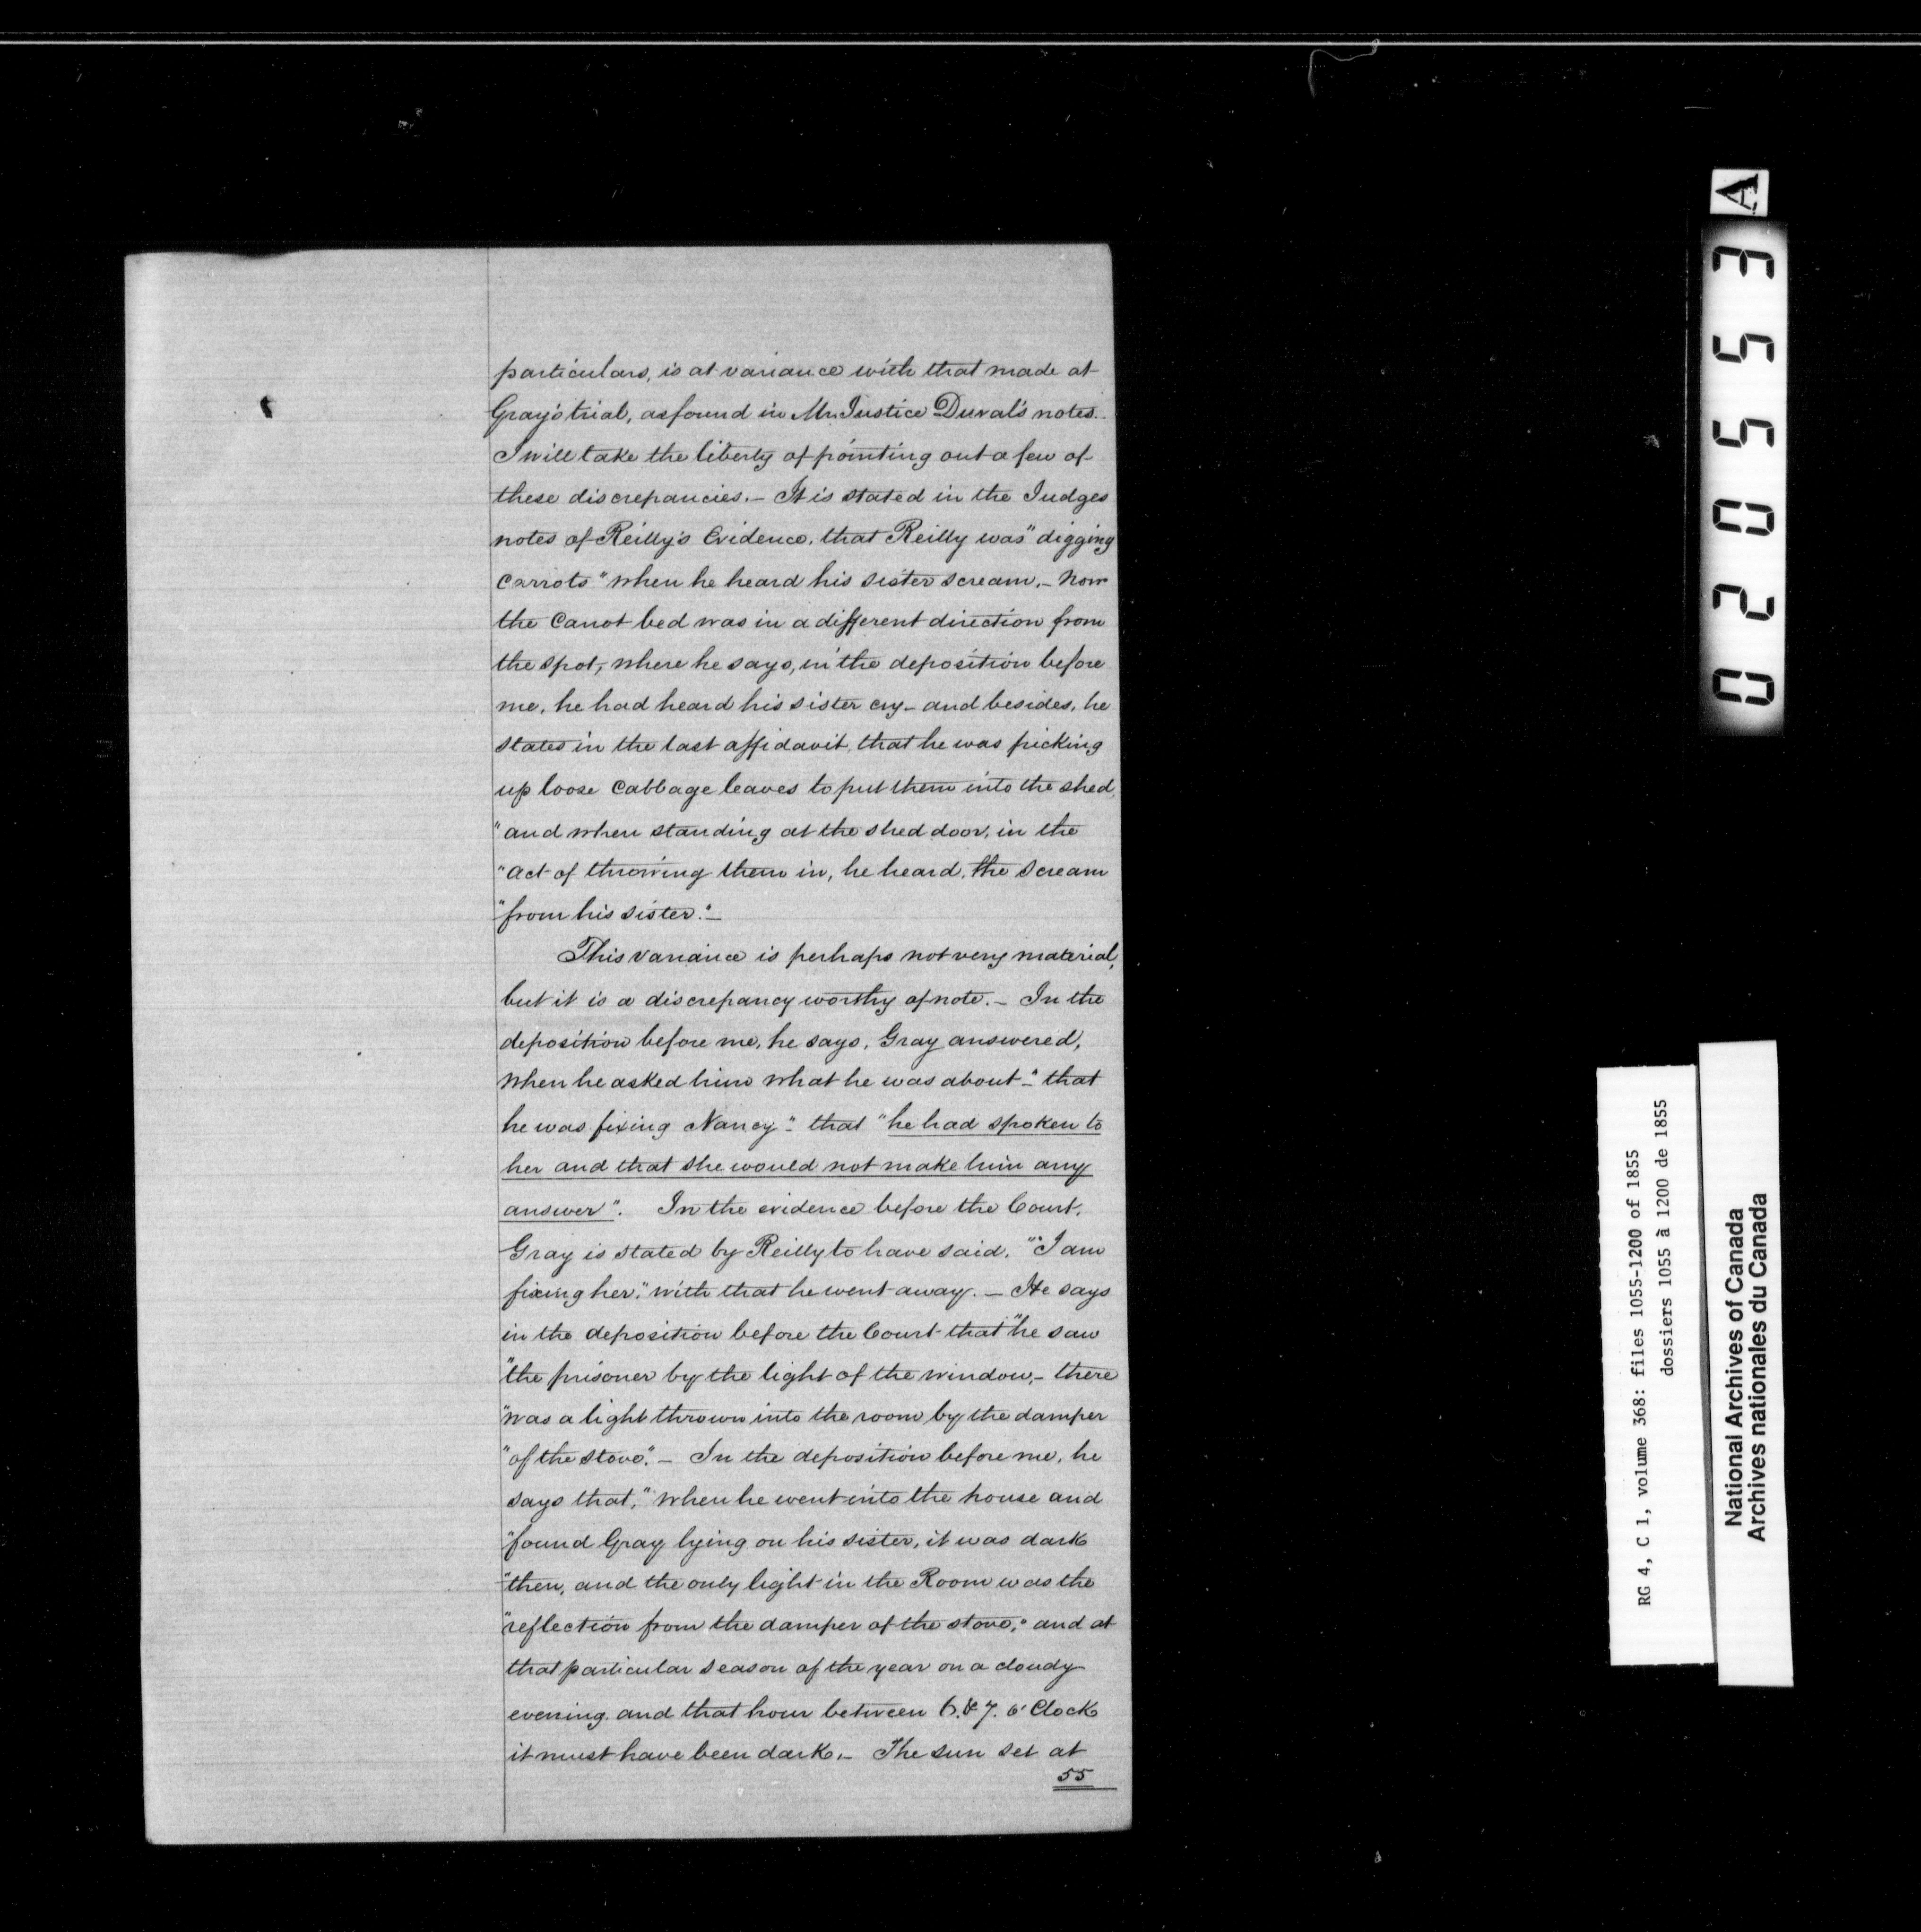 particulars, is at variance with that made at
Gray's trial, as found in Mr. Justice Duval's notes.
I will take the liberty of pointing out a few of
these discrepancies. – It is stated in the Judges
notes of Reilly's Evidence, that Reilly was "digging
Carrots" when he heard his sister scream, – Now
the Carrot bed was in a different direction from
the spot, where he says, in the deposition before
me, he had heard his sister cry – and besides, he
states in the last affidavit, that he was picking
up loose Cabbage leaves to put them into the shed,
"and when standing at the shed door, in the
"act of throwing them in, he heard, the scream
"from his sister." –
This variance is perhaps not very material,
but it is a discrepancy worthy of note. – In the
deposition before me, he says, Gray answered,
when he asked him what he was about – "that
he was fixing Nancy" – that "he had spoken to
her and that she would not make him any
answer". In the evidence before the Court,
Gray is stated by Reilly to have said, "I am
fixing her," with that he went away. – He says
in the deposition before the Court that "he saw
"the prisoner by the light of the window, – there
"was a light thrown into the room by the damper
"of the stove". – In the deposition before me, he
says that, "when he went into the house and
"found Gray lying on his sister, it was dark
"then, and the only light in the Room was the
"reflection from the damper of the stove," and at
that particular season of the year on a cloudy
evening and that hour between 6. & 7. o'Clock
it must have been dark. – The sun set at
55
A
020553
RG 4, C 1, volume 368: files 1055-1200 of 1855
dossiers 1055 à 1200 de 1855
National Archives of Canada
Archives nationales du Canada